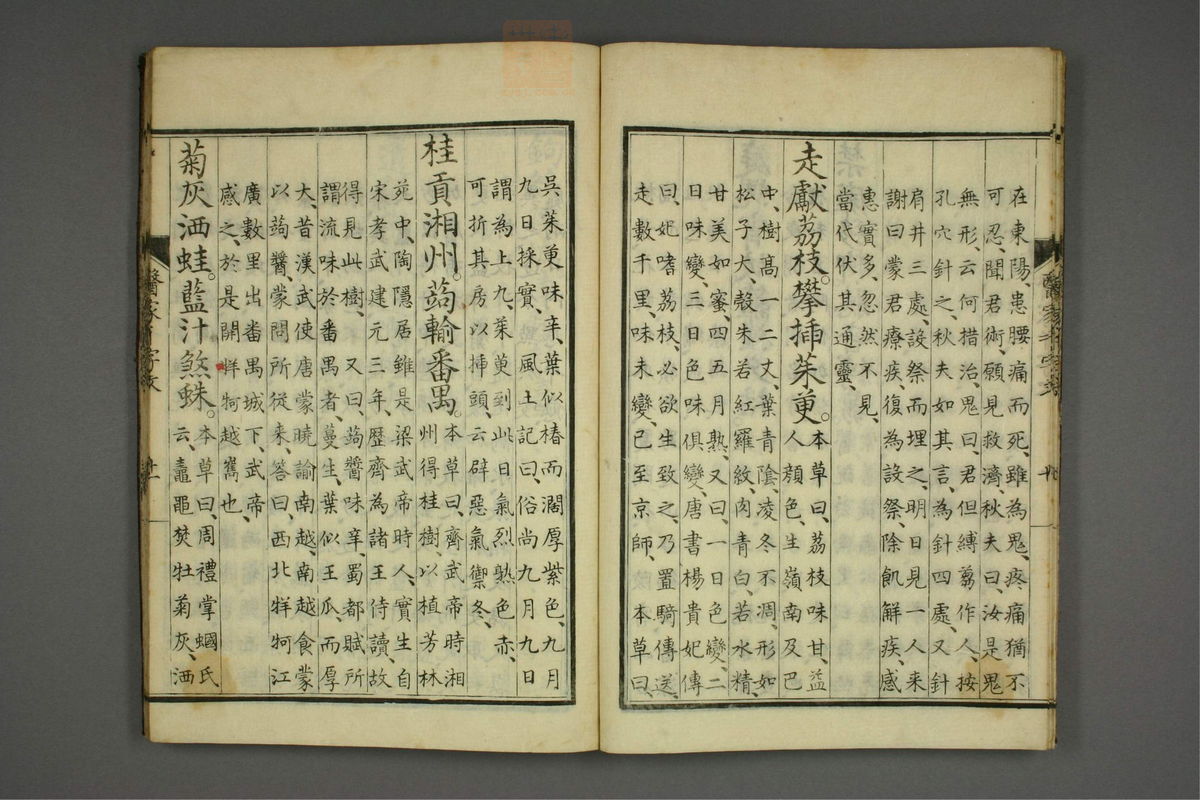 在東陽、患腰痛而死、雖為鬼、疼痛猶不
可忍、聞君術、願見救濟、秋夫曰、汝是鬼
無形、云何措治、鬼曰、君但縛芻作人、按
孔穴針之、秋夫如其言、為針四處、又針
肩井三處、設祭而埋之、明日見一人来
謝曰、蒙君療疾、復為設祭、除飢解疾、感
惠實多、忽然不見、
當代伏其通靈、
走獻荔枝。攀挿茱萸。本草曰、荔枝味甘、益
人顔色、生嶺南及巴
中、樹高一二丈、葉青陰、凌冬不凋、形如
松子大、殼朱若紅羅紋、肉青白、若水精、
甘美如蜜、四五月熟、又曰、一日色變、二
日味變、三日色味俱變、唐書楊貴妃傳
曰、妃嗜荔枝、必欲生致之、乃置騎傳送、
走數千里、味未變、已至京師、本草曰、
吳茱萸味辛、葉似椿而濶厚紫色、九月
九日採實、風土記曰、俗尚九月九日
謂為上九、茱萸到此日、氣烈熟色赤、
可折其房以挿頭、云辟惡氣禦冬、
桂貢湘州。蒟輸番禺。本草曰、齊武帝時湘
州得桂樹、以植芳林
苑中、陶隱居雖是梁武帝時人、實生自
宋孝武建元三年、歷齊為諸王侍讀、故
得見此樹、又曰、蒟醬味辛、蜀都賦所
謂流味於番禺者、蔓生、葉似王瓜、而厚
大、昔漢武使唐蒙曉諭南越、南越食蒙
以蒟醬、蒙問所從来、答曰、西北牂牁江
廣數里、出番禺城下、武帝
感之、於是開牂牁越嶲也、
菊灰洒蛙。藍汁煞蛛。本草曰、周禮掌蟈氏
云、鼃黽焚牡菊灰、洒